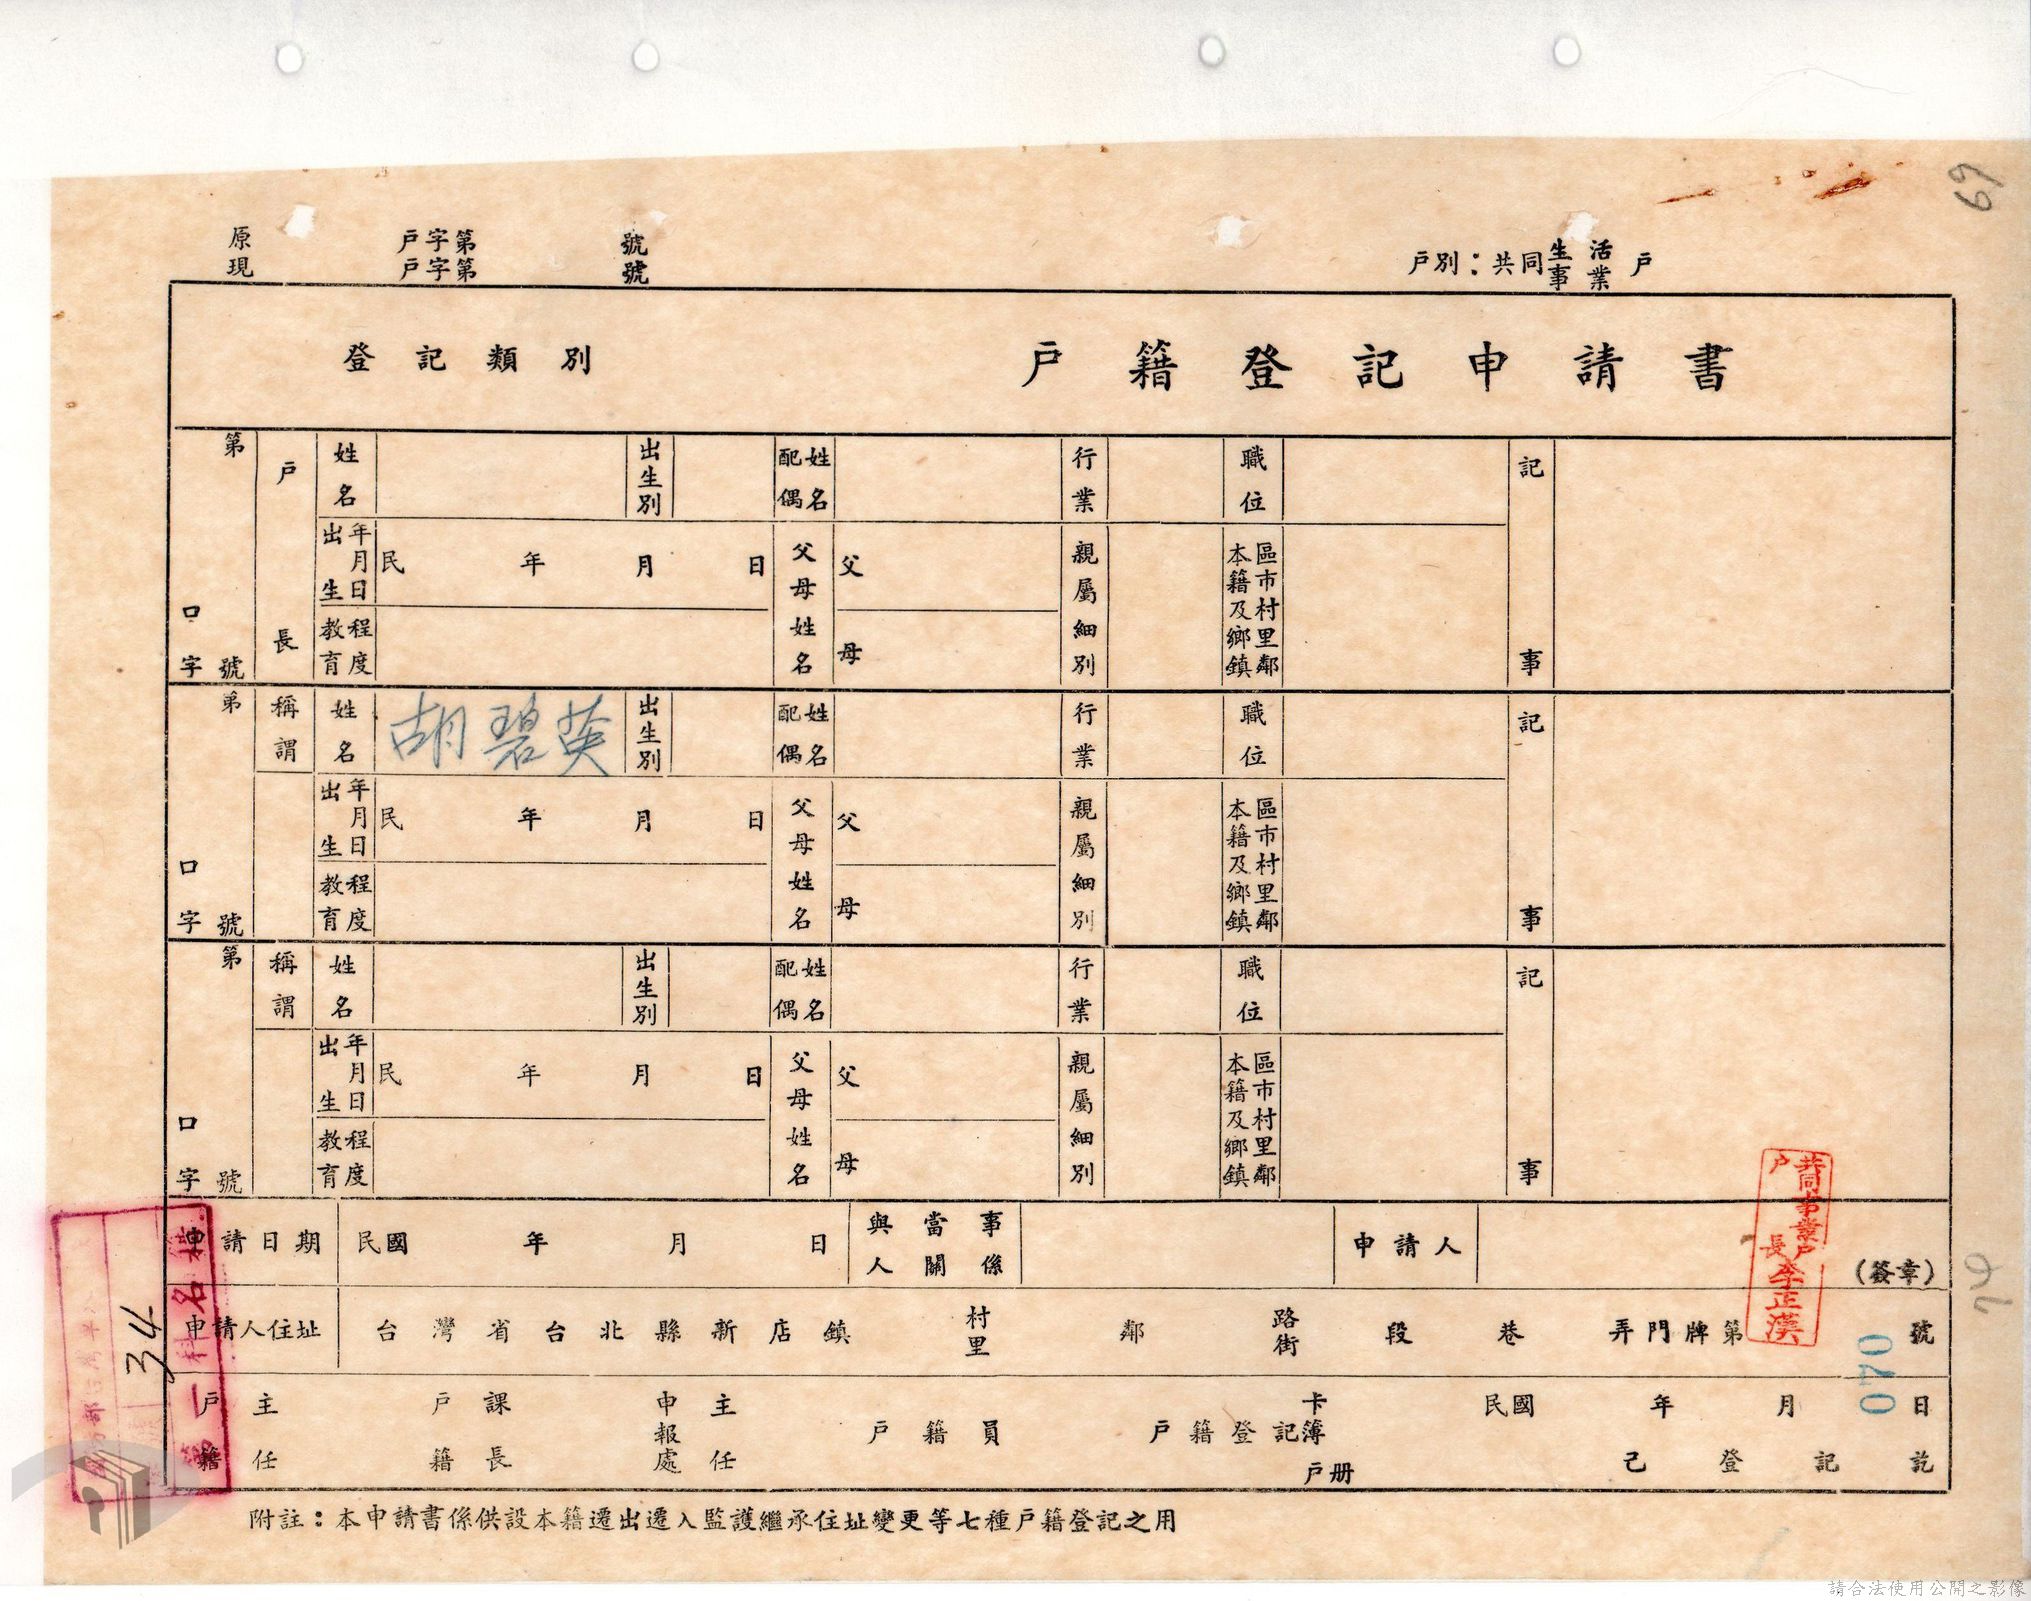 69
原 戶字第 號
現 戶字第 號
戶別：共同生活事業戶
登記類別 戶籍登記申請書
第 戶 姓 出 配姓 行 職 記
名 生別 偶名 業 位
出年 父 親 本區
月 民 年 月 日 母 父 屬 籍市
生日 及村
口 教程 姓 細 鄉里
字 號 長 育度 名 母 別 鎮鄰 事
第 稱 姓 胡碧英 出 配姓 行 職 記
謂 名 生別 偶名 業 位
出年 父 親 本區
月 民 年 月 日 母 父 屬 籍市
生日 及村
口 教程 姓 細 鄉里
字 號 育度 名 母 別 鎮鄰 事
第 稱 姓 出 配姓 行 職 記
謂 名 生別 偶名 業 位
出年 父 親 本區
月 民 年 月 日 母 父 屬 籍市
生日 及村
口 教程 姓 細 鄉里
字 號 育度 名 母 別 鎮鄰 事
共同事業戶
戶長李正漢
申請日期 民國 年 月 日 與當事人關係 申請人 (簽章)
申請人住址 台灣省台北縣新店鎮 村里 鄰 路街 段 巷 弄門牌第 號
34
040
戶籍主任 戶籍課長 申報處主任 戶籍員 戶籍登記卡簿 戶册 民國 年 月 日
己登記訖
附註：本申請書係供設本籍遷出遷入監護繼承住址變更等七種戶籍登記之用
請合法使用公開之影像